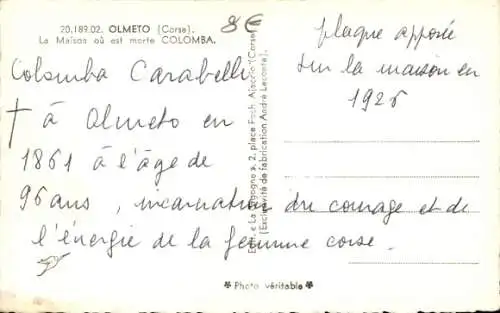 20.189.02. OLMETO (Corse).
La Maison où est morte COLOMBA.
8€
Colomba Carabelli
† à Olmeto en
1861 à l'âge de
96 ans, incarnation du courage et de
l'énergie de la femme corse.
plaque apposée
sur la maison en
1926
2, place Foch, Ajaccio (Corse)
(Exclusivité de fabrication André Leconte).
* Photo véritable *